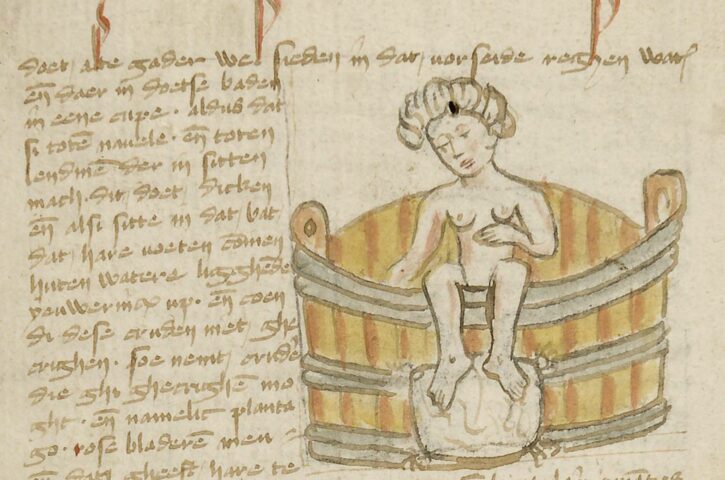 doet alte gader wel sieden in dat vorseide reghen wat
en̄ daer in doetse baden
in eene cupe. aldus dat
si totē navele. en̄ toten
lendinē der in sitten
mach. dit doet dicken
en̄ alsi sitte in dat bat
dat hare voeten comen
huten watere ligghende
up. en̄ coen
di dese cruden niet ghe
crighen. soe nemt crude
die ghi ghecrighē mo
ght. en̄ namelic planta
go. rose bladerē
en̄ gheeft hare te